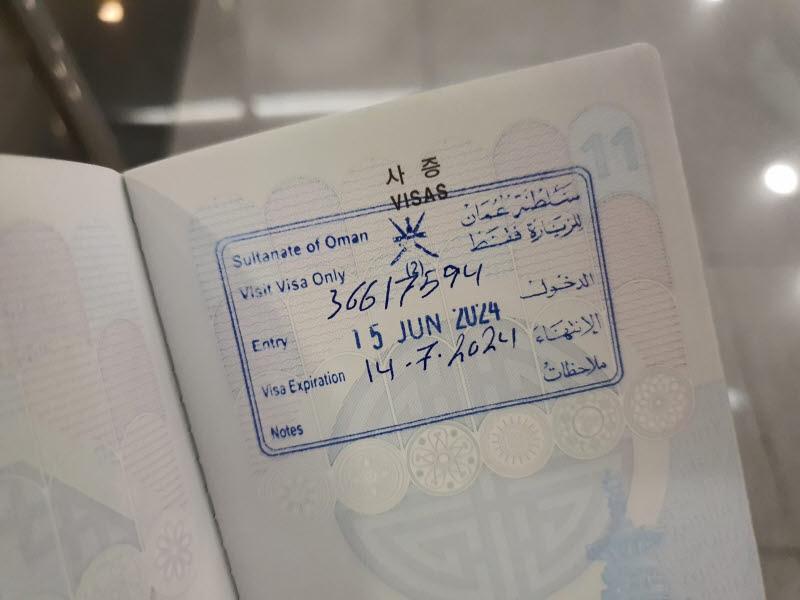 11
사 증
VISAS
Sultanate of Oman سلطنة عُمان
Visit Visa Only للزيارة فقط
(2)
36617594
Entry 15 JUN 2024 الدخول
Visa Expiration 14-7-2024 الانتهاء
Notes ملاحظات